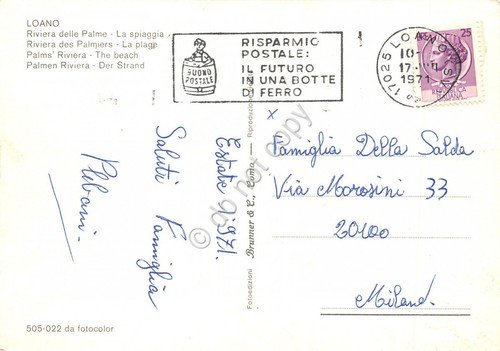 LOANO
Riviera delle Palme - La spiaggia
Riviera des Palmiers - La plage
Palms' Riviera - The beach
Palmen Riviera - Der Strand
BUONO
POSTALE
RISPARMIO
POSTALE:
IL FUTURO
IN UNA BOTTE
DI FERRO
17025 LOANO
1971
25
Estate 1971.
Saluti Famiglia
Plebani
x
Famiglia Della Salda
Via Morosini 33
20100
Milano.
Fotoedizioni Brunner & C., Como
do not copy
505-022 da fotocolor